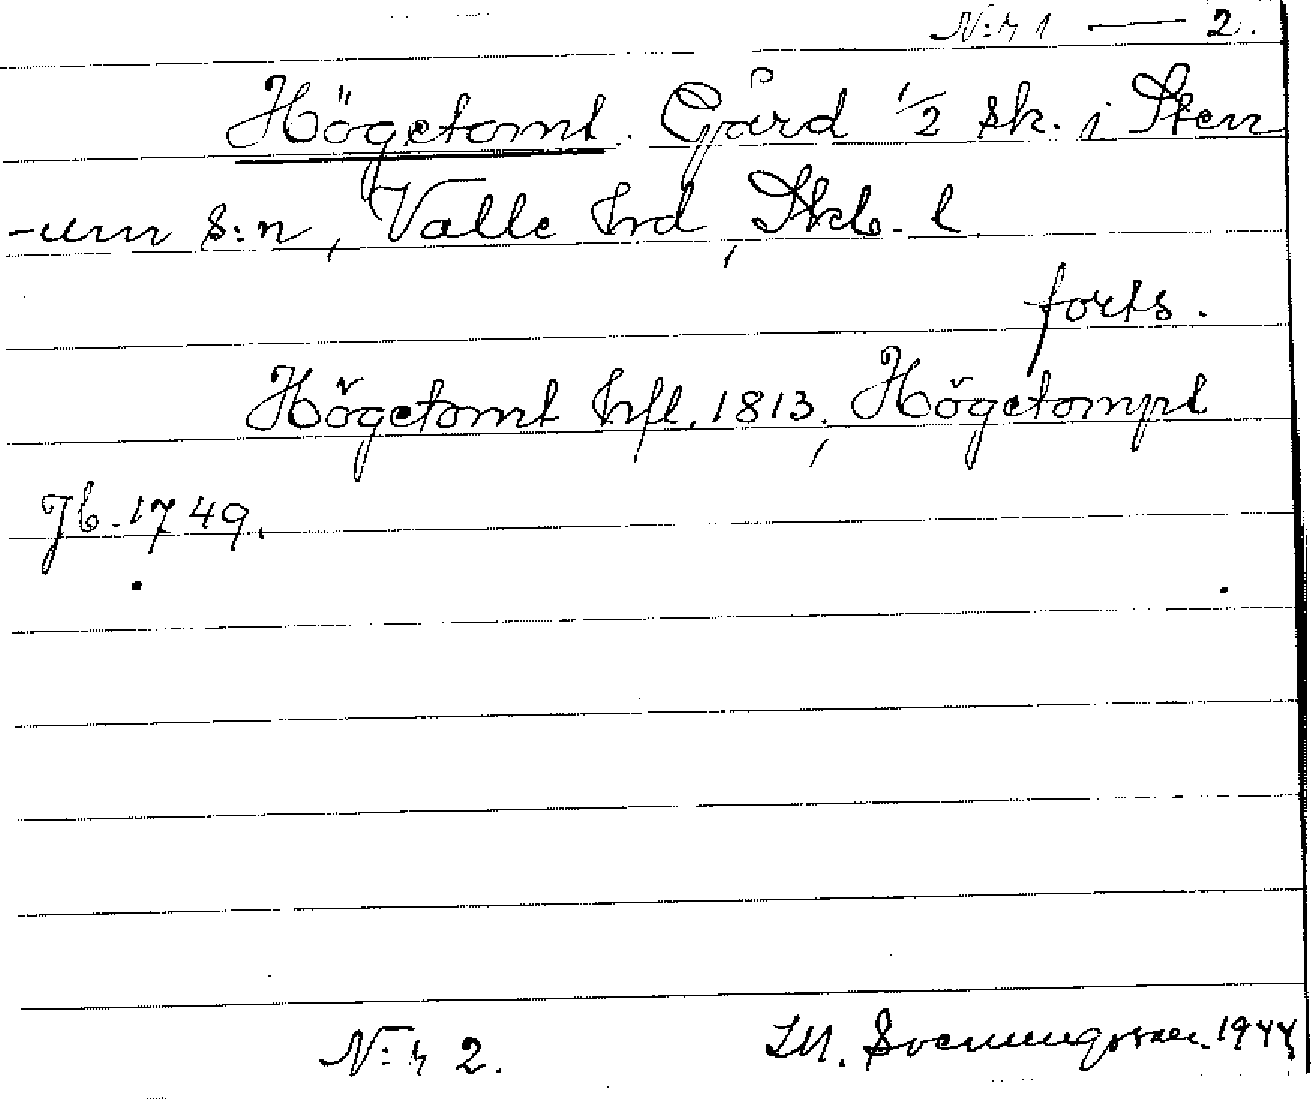 N:r 1 — 2.
Högetomt. Gård 1/2 sk. i Sten
-um s:n, Valle hrd, Skb. l.
forts.
Högetomt hfl. 1813, Högetompt
Jb. 1749.
N:r 2.
Svenungsson 1944